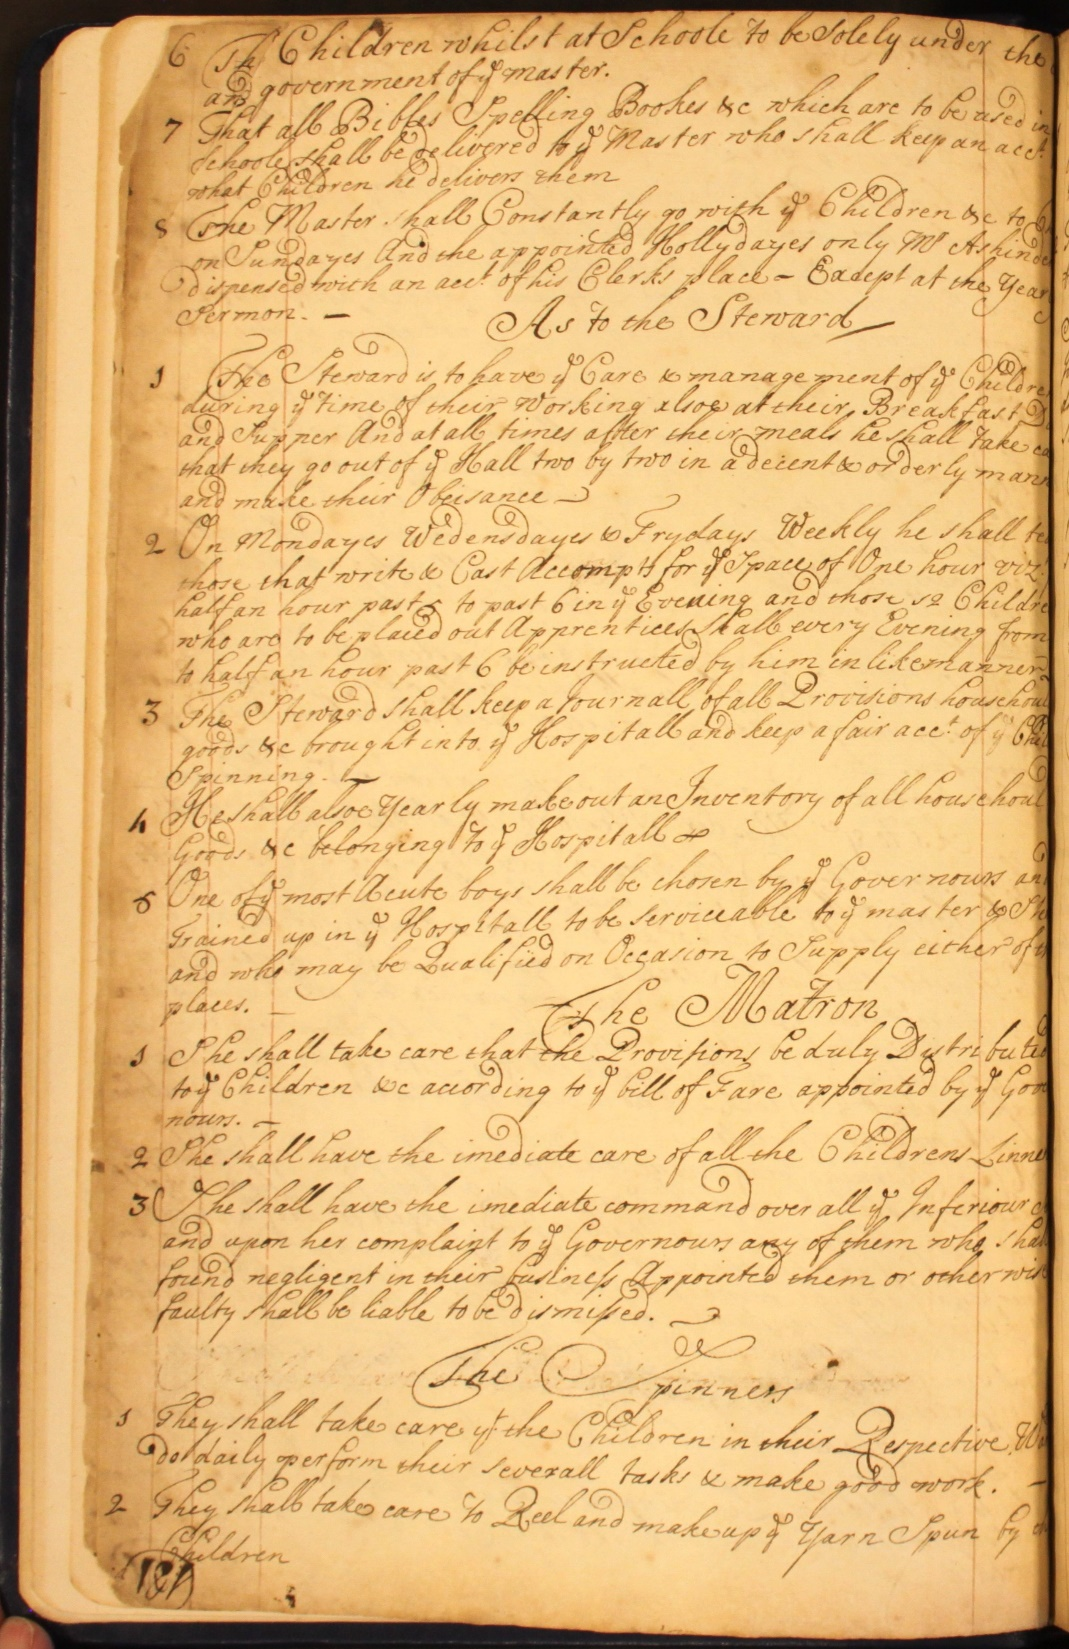 6 The Children whilst at Schoole to be Solely under the
and government of yͤ master.
7 That all Bibles Spelling Bookes &c which are to be used in
Schoole shall be delivered to yͤ Master who shall keep an accᵗ
what Children he delivers them
8 The Master shall Constantly go with yͤ Children &c to
on Sundayes And the appointed Hollydayes only Mʳ
dispensed with an accᵗ of his Clerks place – Except at the Year
Sermon. —
As to the Steward
1 The Steward is to have yͤ Care & management of yͤ Childre
during yͤ time of their Working alsoe at their Breakfast D
and Supper And at all times after their meals he shall take ca
that they go out of yͤ Hall two by two in a decent & orderly mann
and make their Obeisance —
2 On Mondayes Wedensdayes & Frydays Weekly he shall te
those that write & Cast Accompts for yͤ Space of One hour vizᵗ
half an hour past 5 to past 6 in yͤ Evening and those so Childre
who are to be placed out Apprentices Shall every Evening from
to half an hour past 6 be instructed by him in like manner
3 The Steward shall keep a Journall of all Provisions househoul
goods &c brought into yͤ Hospitall and keep a fair accᵗ of yͤ Chil
Spinning. —
4 He shall alsoe Yearly make out an Inventory of all househoul
Goods &c belonging to yͤ Hospitall
5 One of yͤ most Acute boys shall be chosen by yͤ Governours an
Trained up in yͤ Hospitall to be serviceable to yͤ master & St
and who may be Qualified on Occasion to Supply either of
places. —
The Matron
1 She shall take care that the Provisions be duly Distributed
to yͤ Children &c according to yͤ bill of Fare appointed by yͤ Gove
nours. —
2 She shall have the imediate care of all the Childrens Linne
3 She shall have the imediate command over all yͤ Inferiour
and upon her complaint to yͤ Governours any of them who shal
found negligent in their business Appointed them or otherwise
faulty shall be liable to be dismissed.
The Spinners
1 They shall take care yᵗ the Children in their Respective W
do daily perform their severall tasks & make good work. —
2 They shall take care to Reel and make up yͤ Yarn Spun by
Children